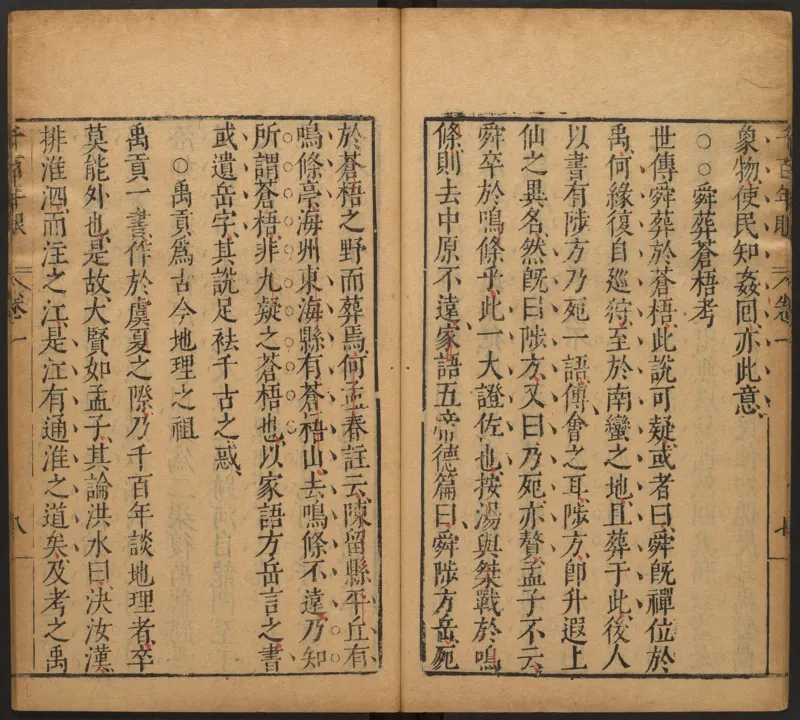 象物使民知姦回亦此意
○○舜葬蒼梧考
世傳舜葬於蒼梧此説可疑或者曰舜旣禪位於
禹何緣復自巡狩至於南蠻之地且葬于此後人
以書有陟方乃死一語傅會之耳陟方卽升遐上
仙之異名然旣曰陟方又曰乃死亦贅孟子不云
舜卒於鳴條乎此一大證佐也按湯與桀戰於鳴
條則去中原不遠家語五帝德篇曰舜陟方岳死
於蒼梧之野而葬焉何孟春註云陳留縣平丘有
鳴條亭海州東海縣有蒼梧山去鳴條不遠乃知
所謂蒼梧非九疑之蒼梧也以家語方岳言之書
或遺岳字其説足袪千古之惑
○禹貢爲古今地理之祖
禹貢一書作於虞夏之際乃千百年談地理者卒
莫能外也是故大賢如孟子其論洪水曰決汝漢
排淮泗而注之江是江有通淮之道矣及考之禹